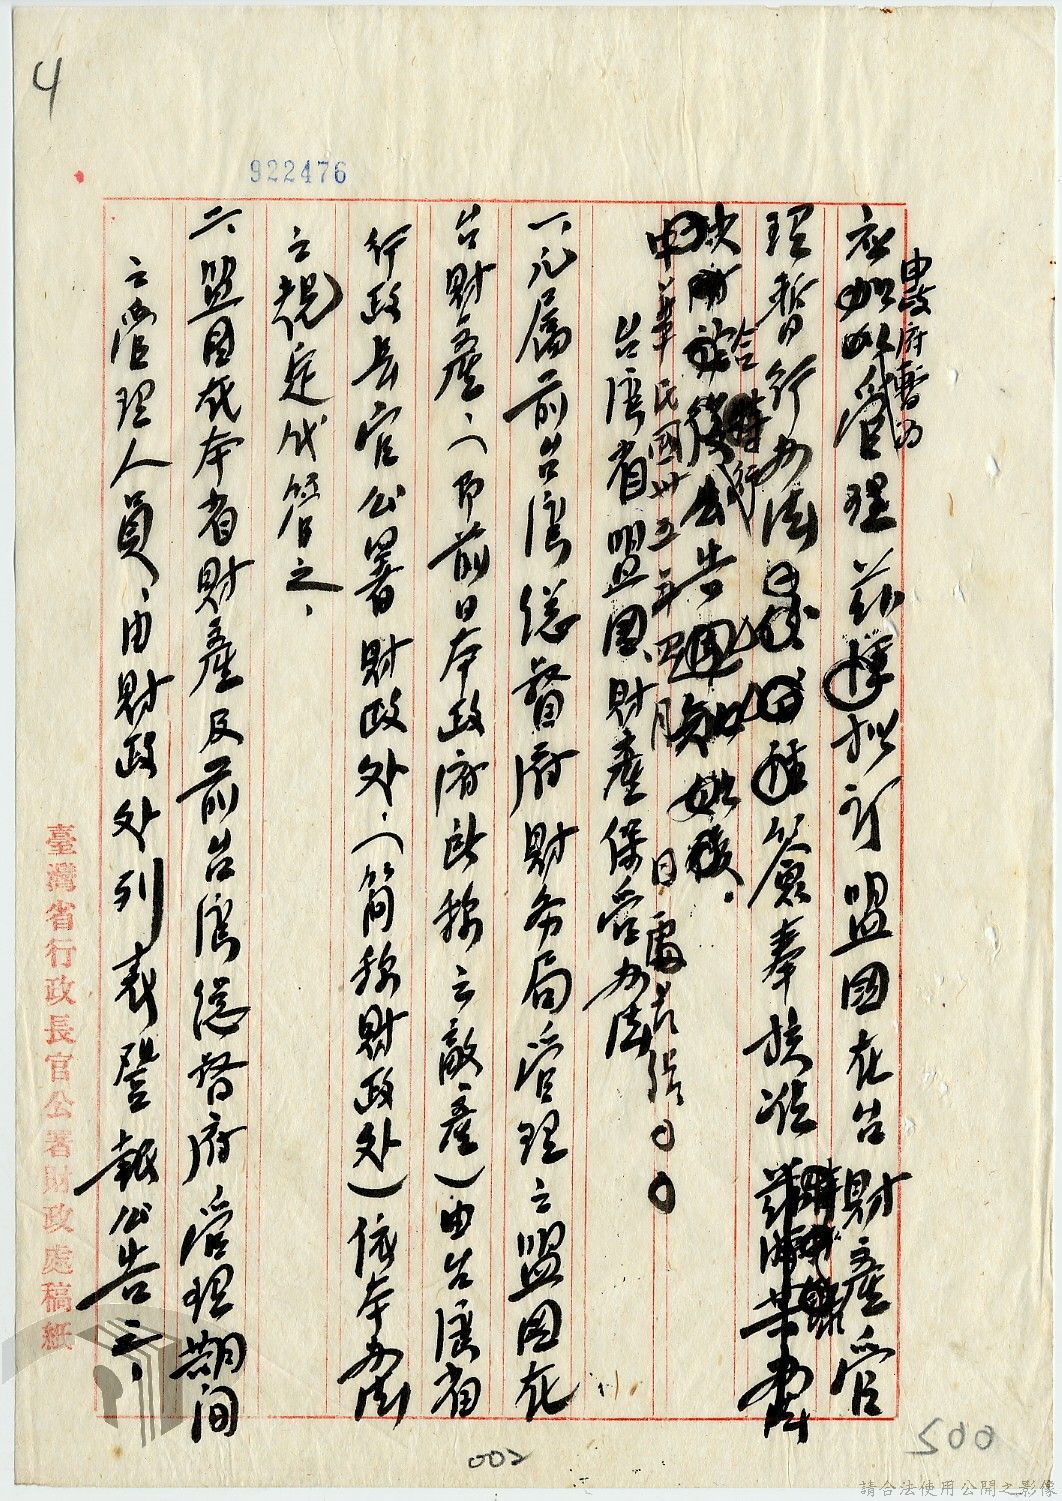 4
922476
由政府暫為
應加以管理茲擬訂盟國在台財產管
理暫行辦法簽奉核准
合特行
公告週知
中華民國卅五年 月 日 處長張〇〇
台灣省盟國財產保管办法
一、凡屬前台灣總督府財务局管理之盟国在
台財產、（即前日本政府所称之敵產）由台灣省
行政長官公署財政处、（简称財政处）依本办法
之規定代管之、
二、盟国在本省財產及前台灣總督府管理期间
之管理人員、由財政处列表登報公告之、
臺灣省行政長官公署財政處稿紙
002
500
請合法使用公開之影像